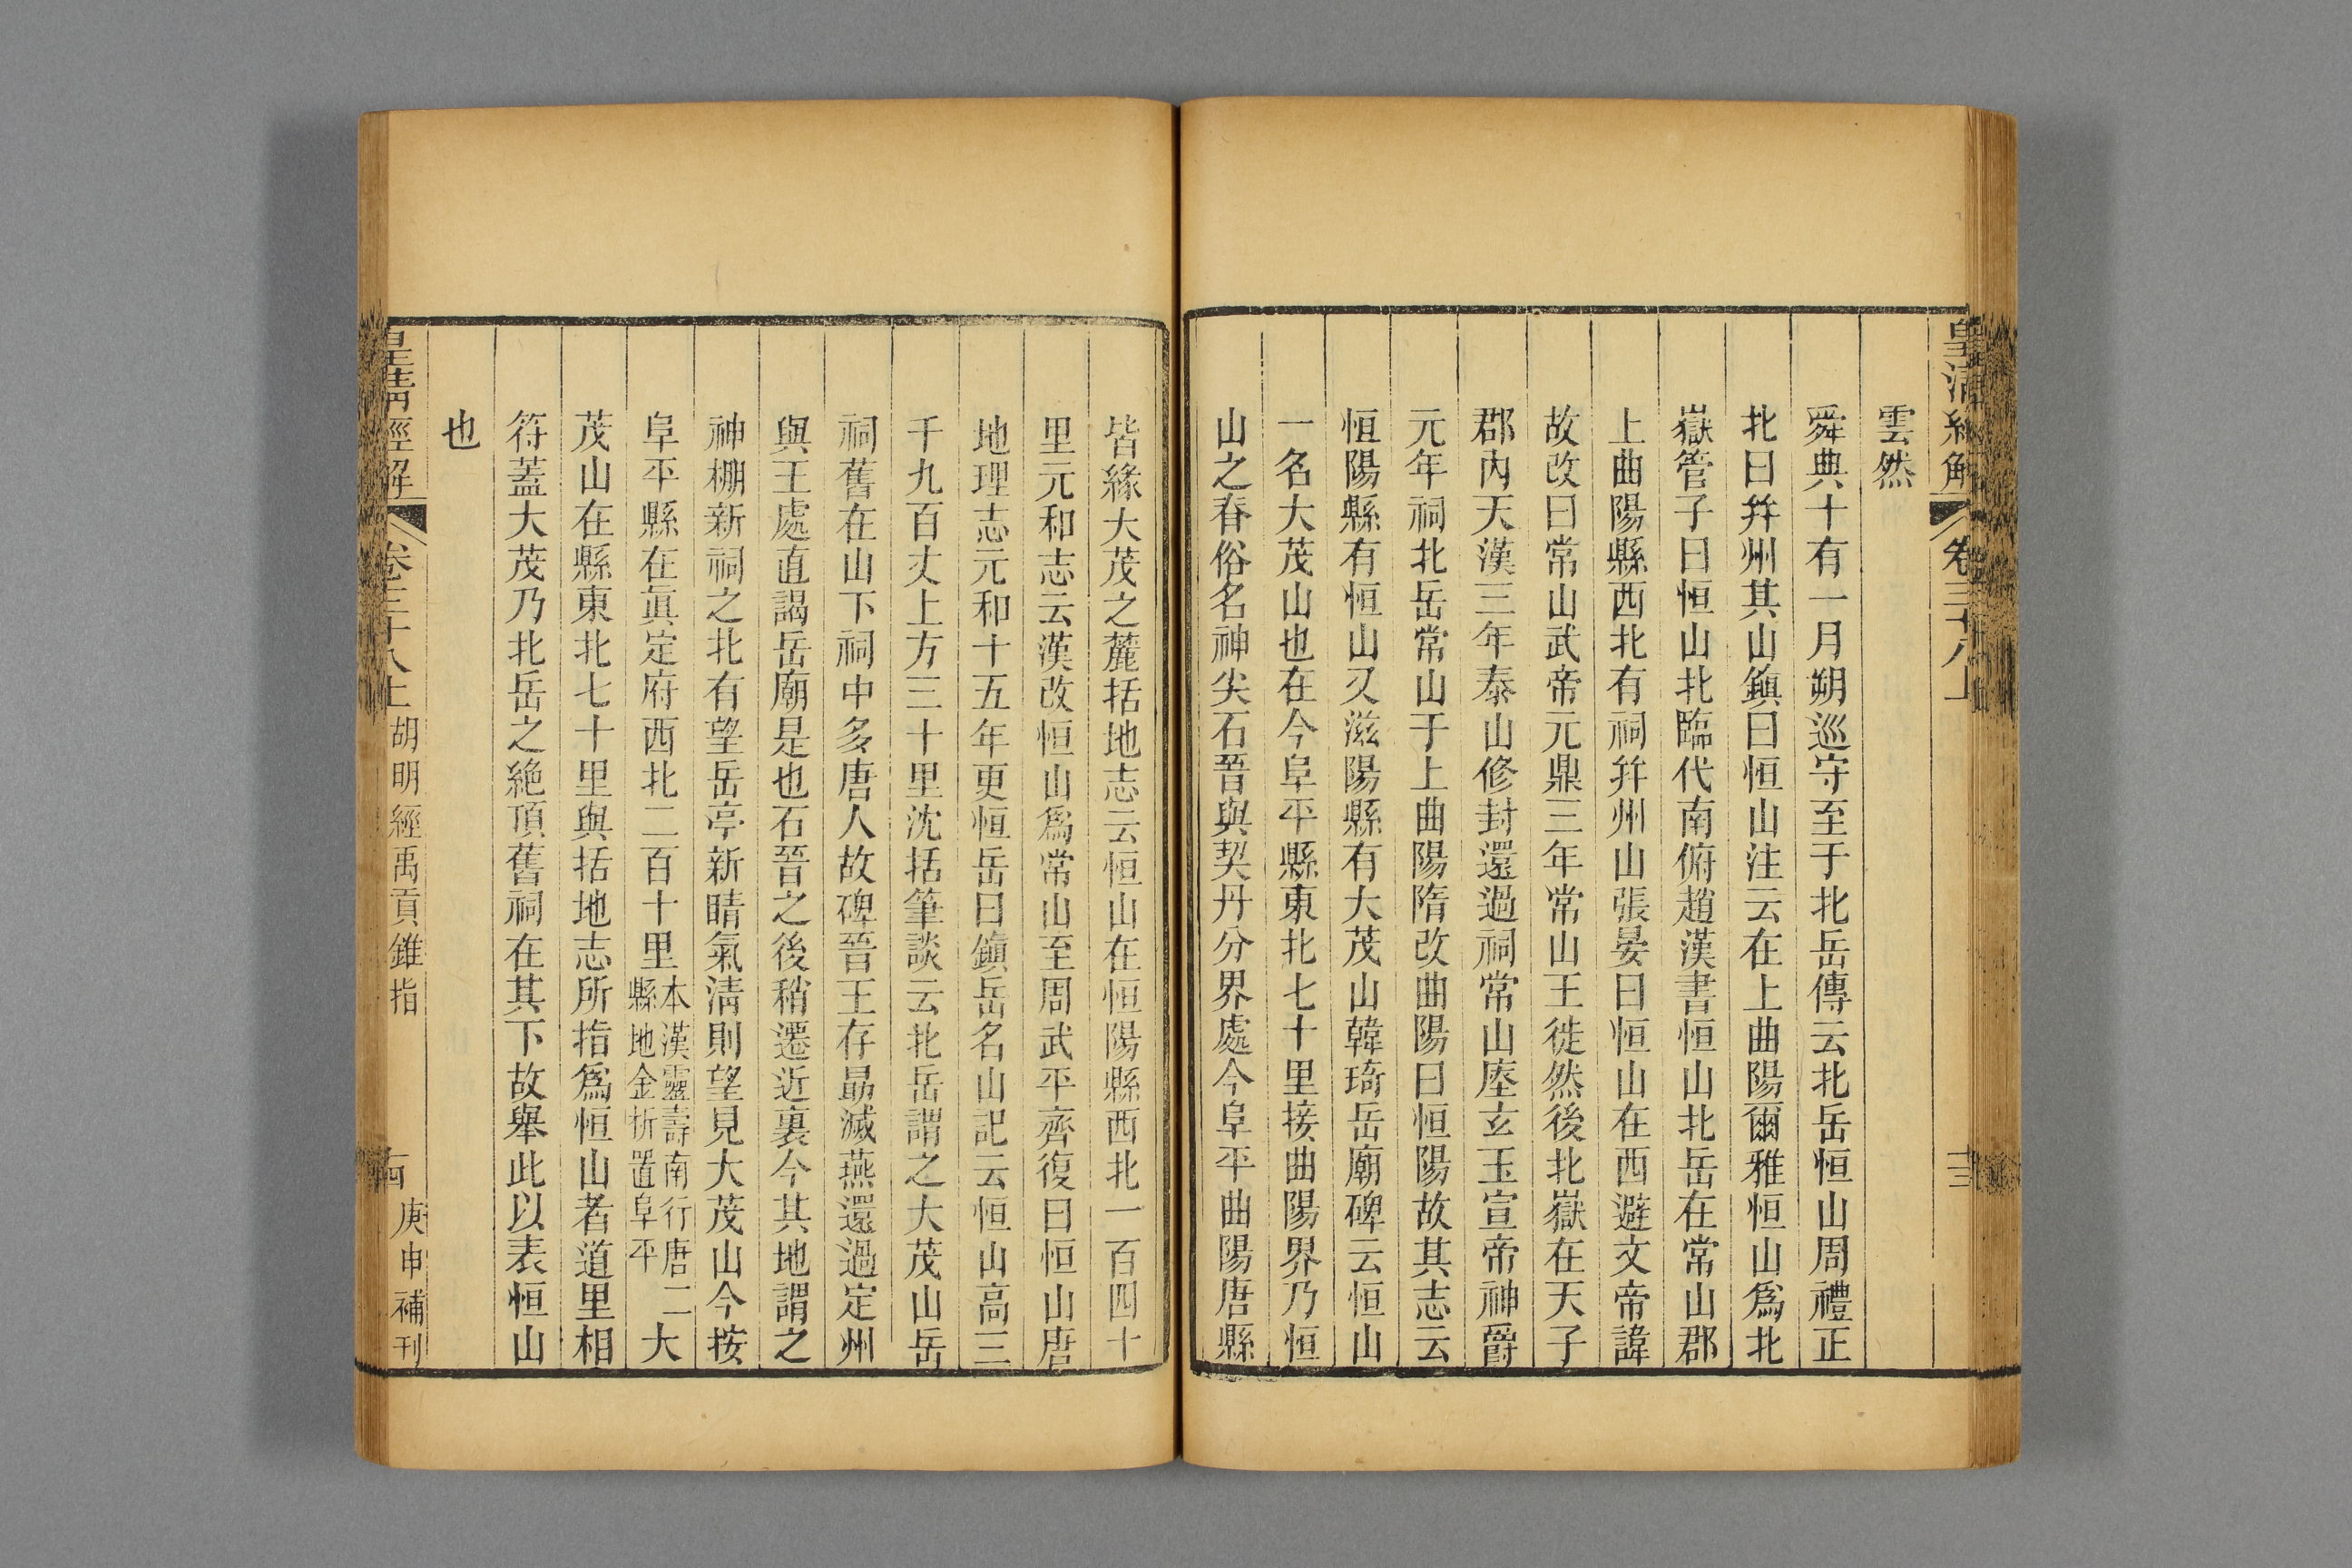 皇清經解 卷三十八上 十三
雲然
舜典十有一月朔巡守至于北岳傳云北岳恒山周禮正
北曰幷州其山鎮曰恒山注云在上曲陽爾雅恒山爲北
嶽管子曰恒山北臨代南俯趙漢書恒山北岳在常山郡
上曲陽縣西北有祠幷州山張晏曰恒山在西避文帝諱
故改曰常山武帝元鼎三年常山王徙然後北嶽在天子
郡內天漢三年泰山修封還過祠常山瘞玄玉宣帝神爵
元年祠北岳常山于上曲陽隋改曲陽曰恒陽故其志云
恒陽縣有恒山又滋陽縣有大茂山韓琦岳廟碑云恒山
一名大茂山也在今阜平縣東北七十里接曲陽界乃恒
山之脊俗名神尖石晉與契丹分界處今阜平曲陽唐縣
皆緣大茂之麓括地志云恒山在恒陽縣西北一百四十
里元和志云漢改恒山爲常山至周武平齊復曰恒山唐
地理志元和十五年更恒岳曰鎮岳名山記云恒山高三
千九百丈上方三十里沈括筆談云北岳謂之大茂山岳
祠舊在山下祠中多唐人故碑晉王存勗滅燕還過定州
與王處直謁岳廟是也石晉之後稍遷近裏今其地謂之
神棚新祠之北有望岳亭新晴氣清則望見大茂山今按
阜平縣在眞定府西北二百十里本漢靈壽南行唐二縣地金析置阜平大
茂山在縣東北七十里與括地志所指爲恒山者道里相
符蓋大茂乃北岳之絶頂舊祠在其下故舉此以表恒山
也
皇清經解 卷三十八上 胡明經禹貢錐指 十四 庚申補刊